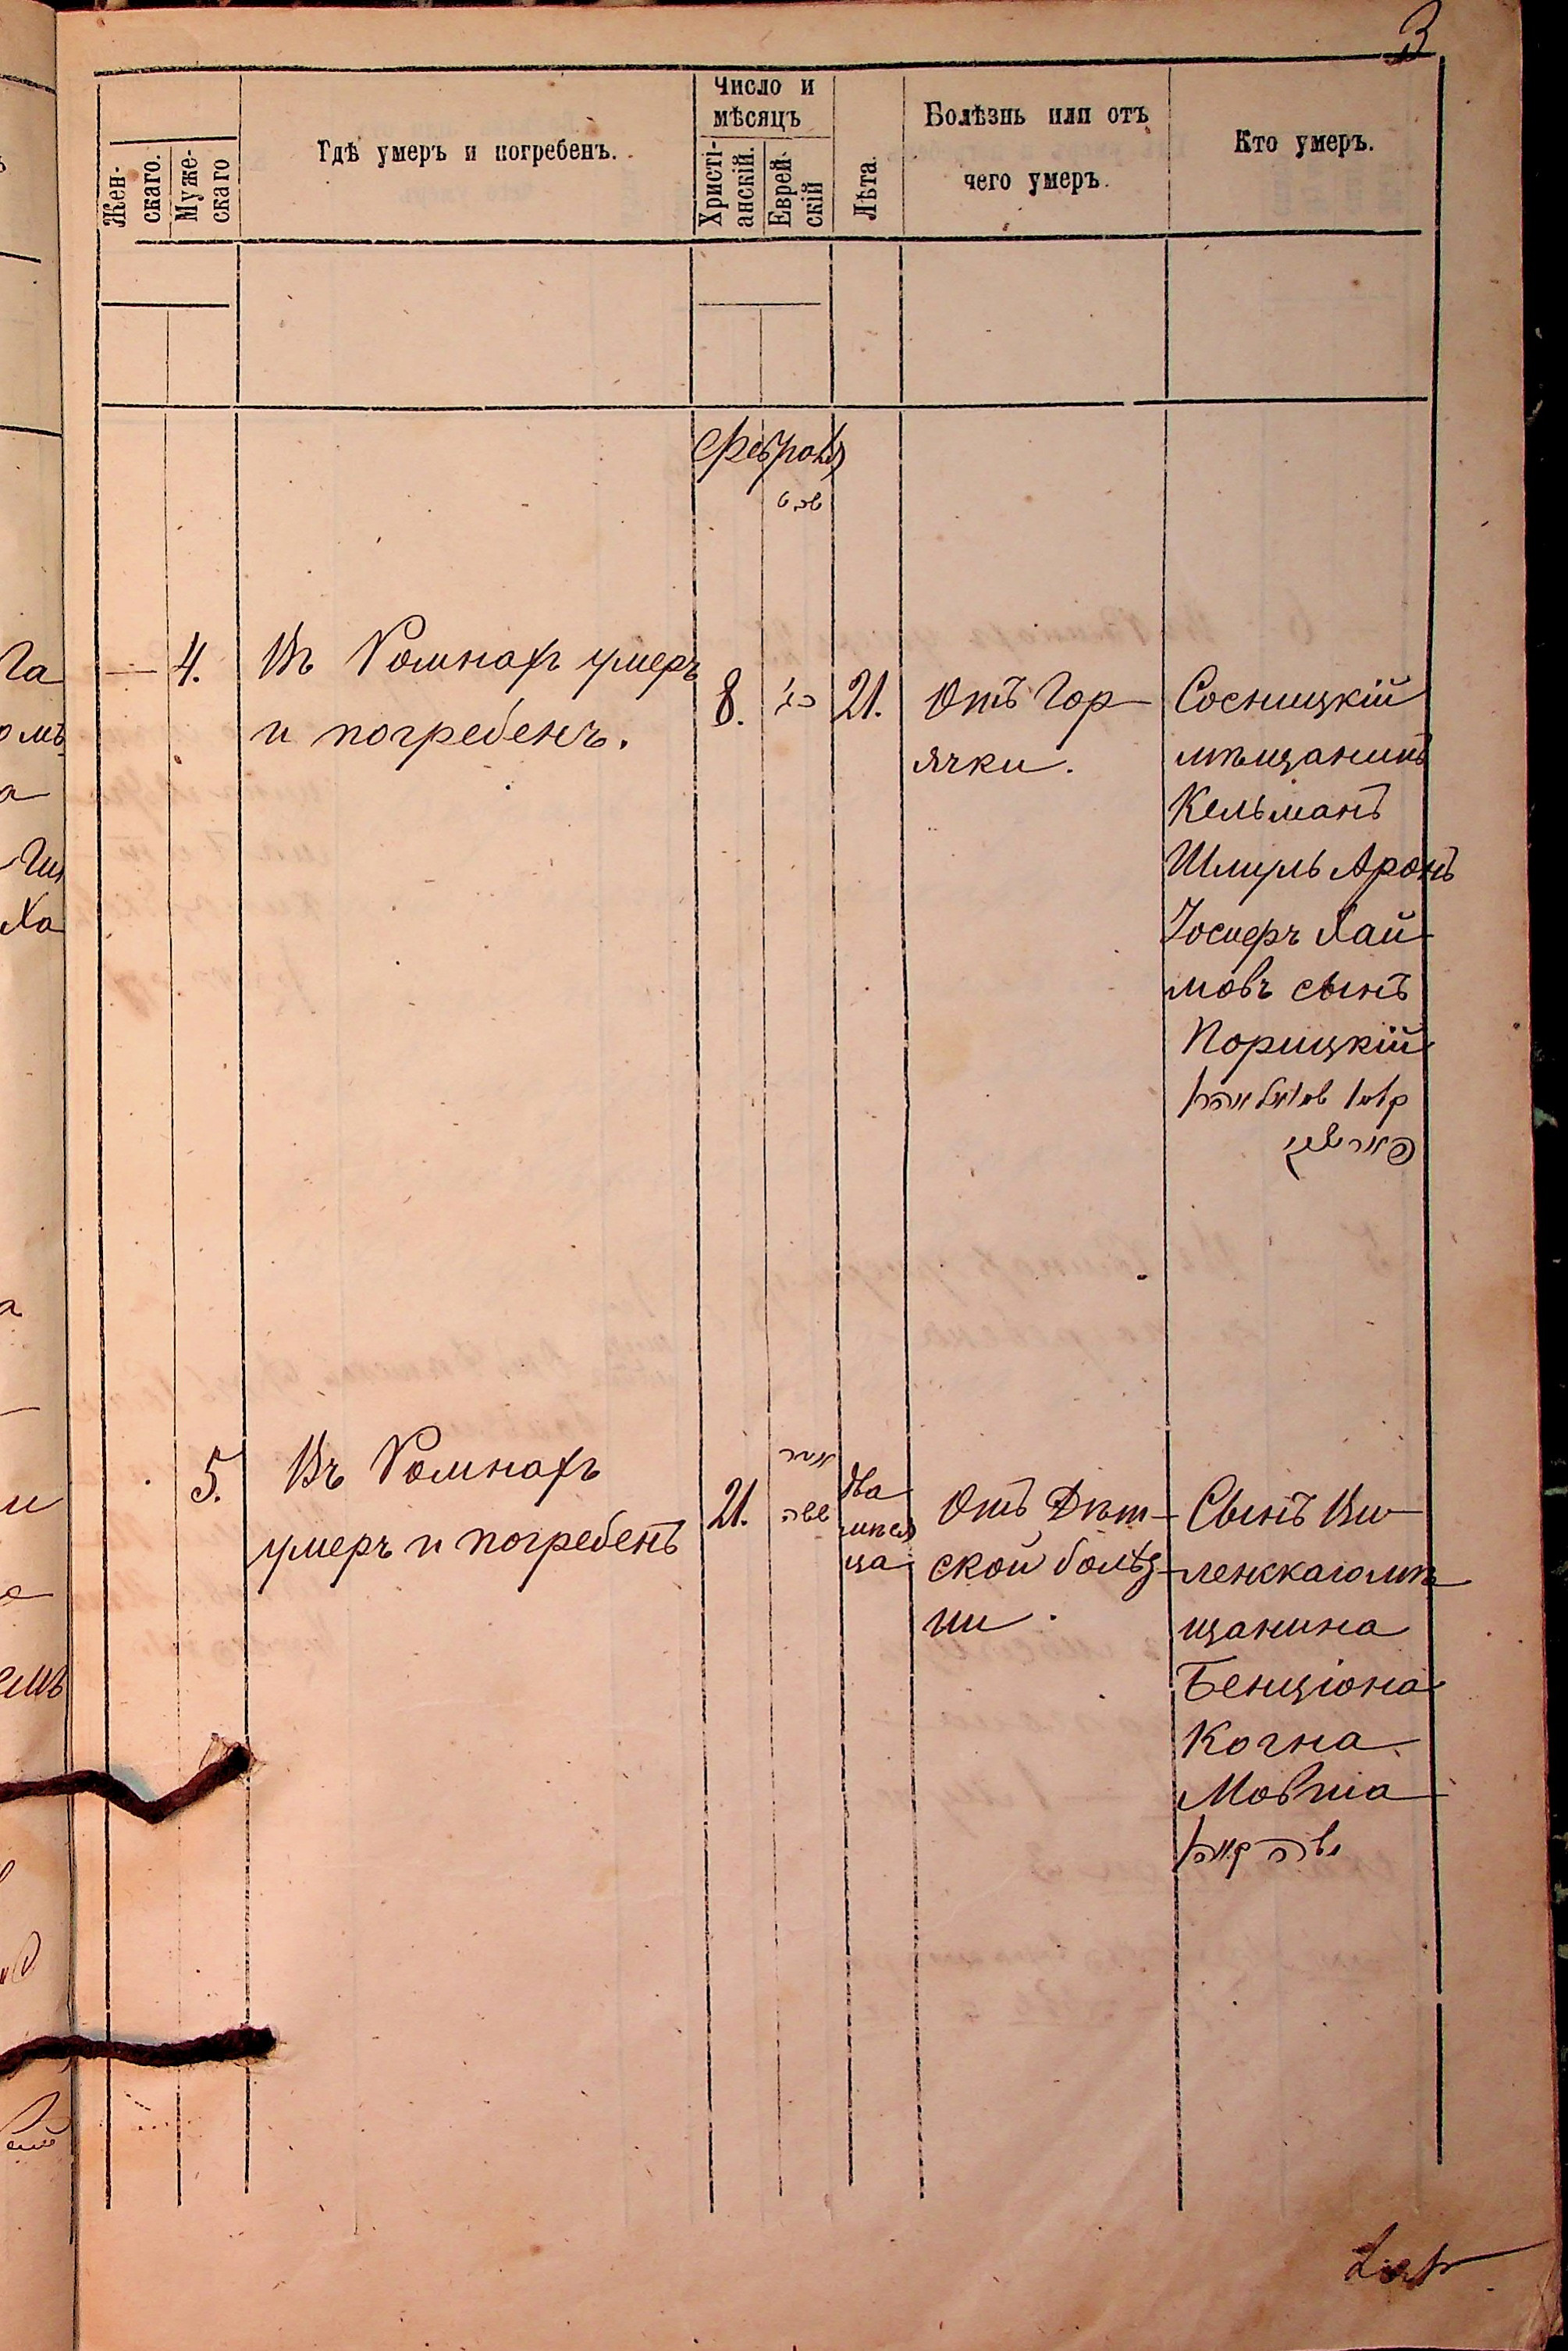 3
Жен-
скаго.
Муже-
скаго
Гдѣ умеръ и погребенъ.
Число и
мѣсяцъ
Христі-
анскій.
Еврей-
скій
Лѣта
Болѣзнь или отъ
чего умеръ.
Кто умеръ.
Февраля
שבט
— 4.
Въ Ромнахъ умеръ
и погребенъ.
8.
21.
Отъ Гор-
ячки.
Сосницкій
мѣщанинъ
Кельманъ
Шмуль Аронъ
Іосиеръ Хай-
мовъ сынъ
Порицкій
5.
Въ Ромнахъ
умеръ и погребенъ
21.
אדר
два
мѣся
ца
Отъ Дѣт-
ской болѣз-
ни.
Сынъ Ви-
ленскаго мѣ
щанина
Бенціона
Когна
Мовша